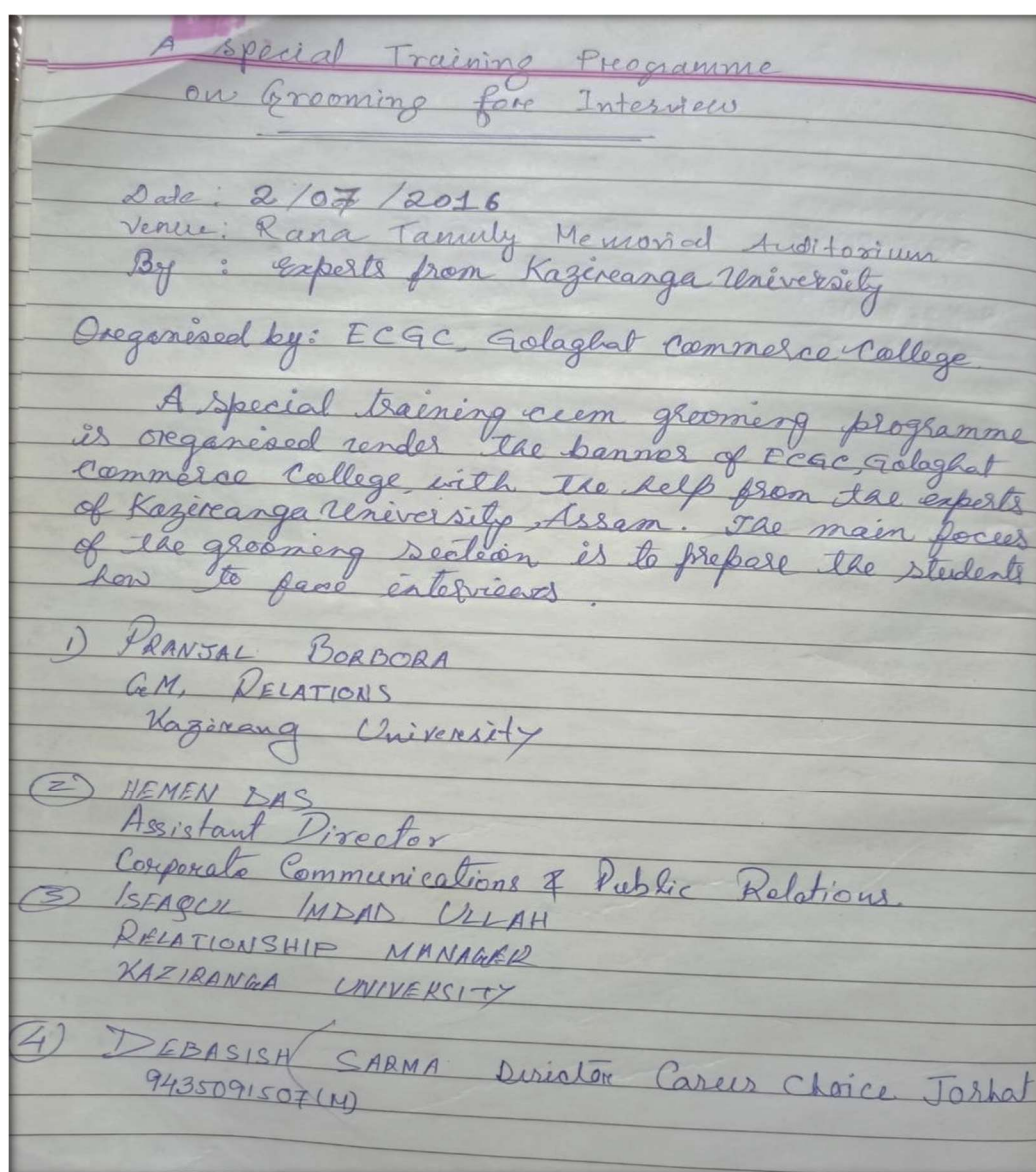 A Special Training Programme
on Grooming for Interview
Date: 2/07/2016
Venue: Rana Tamuly Memorial Auditorium
By : experts from Kaziranga University
Organised by: ECGC, Golaghat Commerce College.
A special training cum grooming programme
is organised under the banner of ECGC, Golaghat
Commerce College with the help from the experts
of Kaziranga University, Assam. The main focus
of the grooming section is to prepare the students
how to face interviews.
1) PRANJAL BORBORA
GM, RELATIONS
Kazirang University
2) HEMEN DAS
Assistant Director
Corporate Communications & Public Relations.
3) ISFAQUL IMDAD ULLAH
RELATIONSHIP MANAGER
KAZIRANGA UNIVERSITY
4) DEBASISH SARMA Director Career Choice Jorhat
9435091507(M)